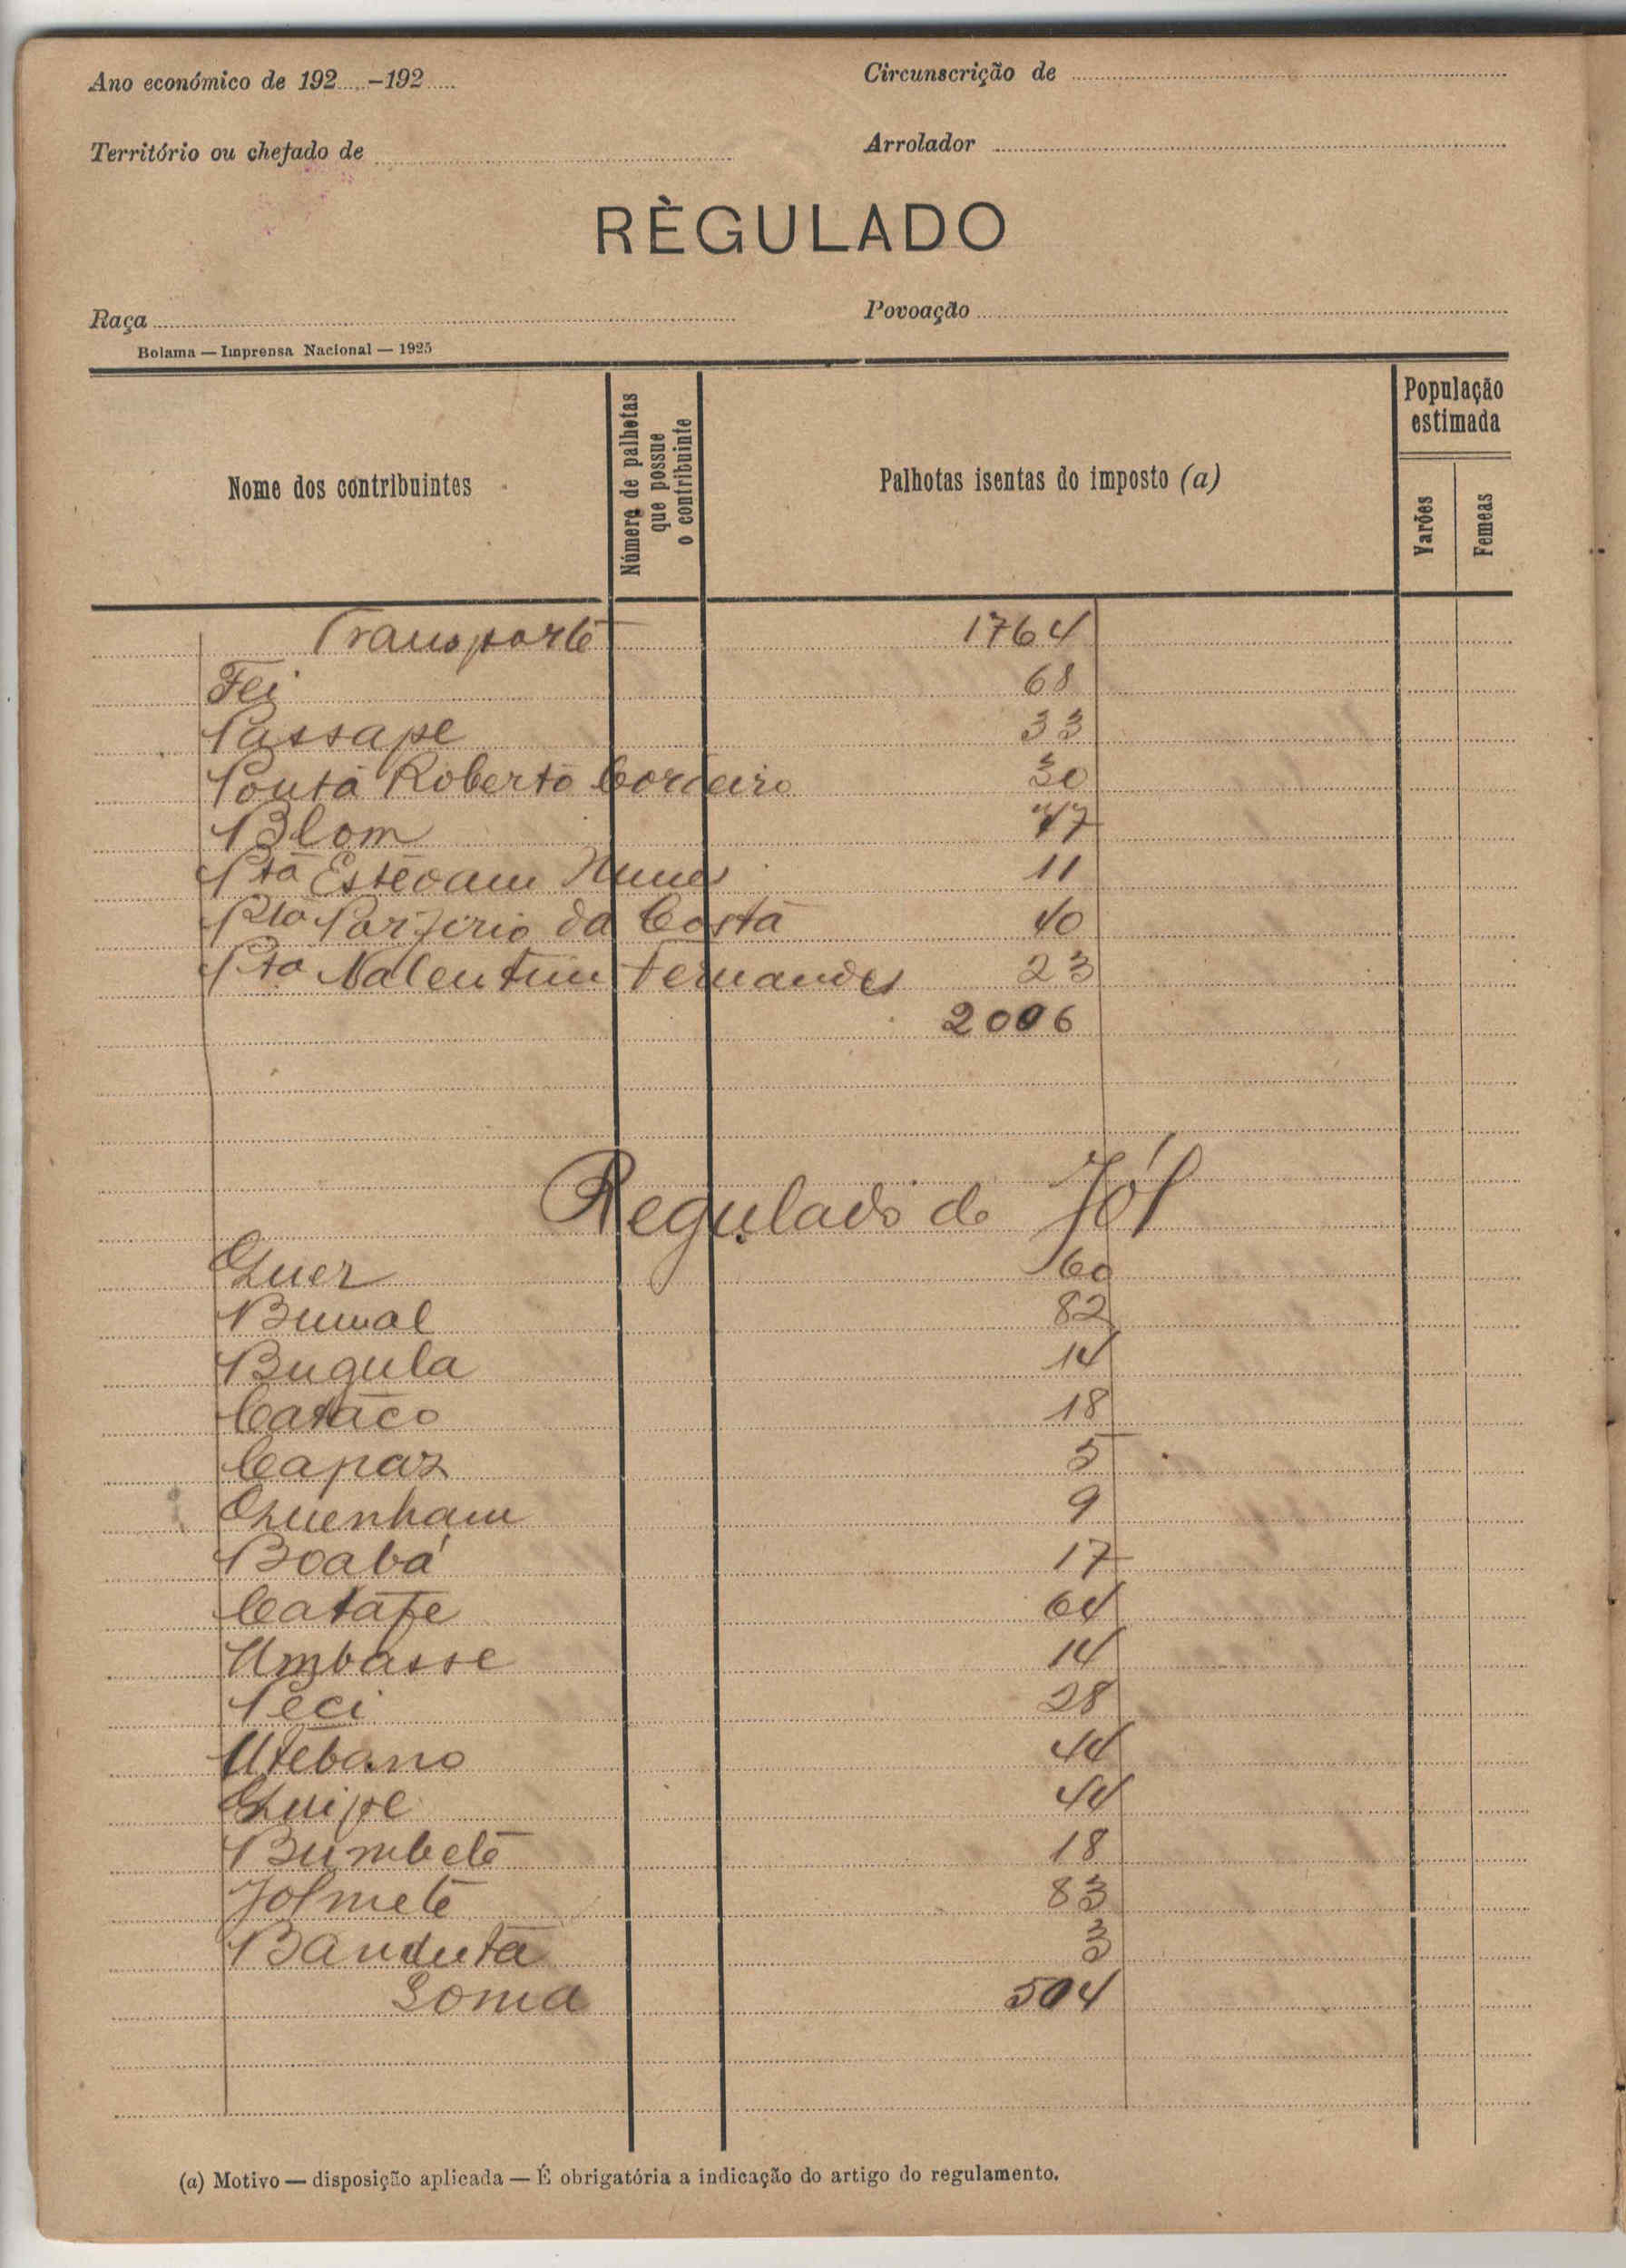 Ano económico de 192.....-192.....
Circunscrição de
Território ou chefado de
Arrolador
RÈGULADO
Raça
Povoação
Bolama — Imprensa Nacional — 1925
Nome dos contribuintes
Número de palhotas
que possue
o contribuinte
Palhotas isentas do imposto (a)
População
estimada
Varões
Femeas
Transporte 1764
Fei 68
Passape 33
Ponta Roberto Cordeiro 30
Blom
Pta Estevam Nunes 11
Pta Porfirio da Costa 40
Pta Valentim Fernandes 23
2006
Regulado de Jól
Quer 60
Bumal 82
Bugula 14
Cataco 18
Capaz 5
Quenham 9
Boabá 17
Catafe 64
Umbasse 14
Peci 28
Utebano 44
Quipe 44
Bumbete 18
Jolmete 83
Banduta 3
Soma 504
(a) Motivo — disposição aplicada — É obrigatória a indicação do artigo do regulamento.